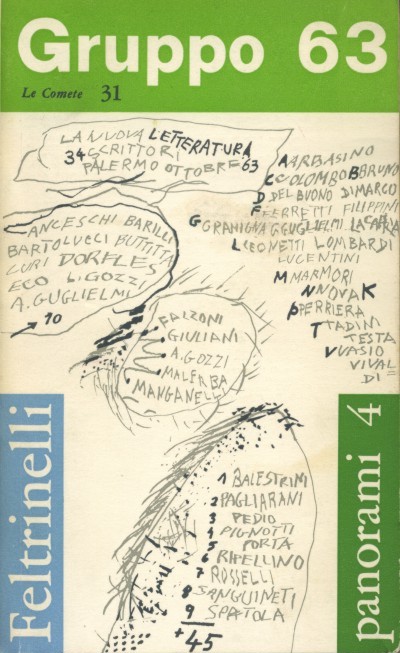 Gruppo 63
Le Comete 31
LA NUOVA LETTERATURA
34 SCRITTORI
PALERMO OTTOBRE 63
ANCESCHI BARILLI
BARTOLUCCI BUTTITTA
CURI DORFLES
ECO L. GOZZI
A. GUGLIELMI
→ 10
ARBASINO
COLOMBO BRUNO
DEL BUONO DIMARCO
FERRETTI FILIPPINI
GRAMIGNA G GUGLIELMI LA CAPRIA
LEONETTI LOMBARDI
LUCENTINI
MARMORI
NOVAK
PERRIERA
TADINI
TESTA
VASIO
VIVAL
DI
FALZONI
GIULIANI
A. GOZZI
MALERBA
MANGANELLI
1 BALESTRINI
2 PAGLIARANI
3 PEDIO
4 PIGNOTTI
5 PORTA
6 RIPELLINO
7 ROSSELLI
8 SANGUINETI
9 SPATOLA
+ 45
Feltrinelli
panorami 4